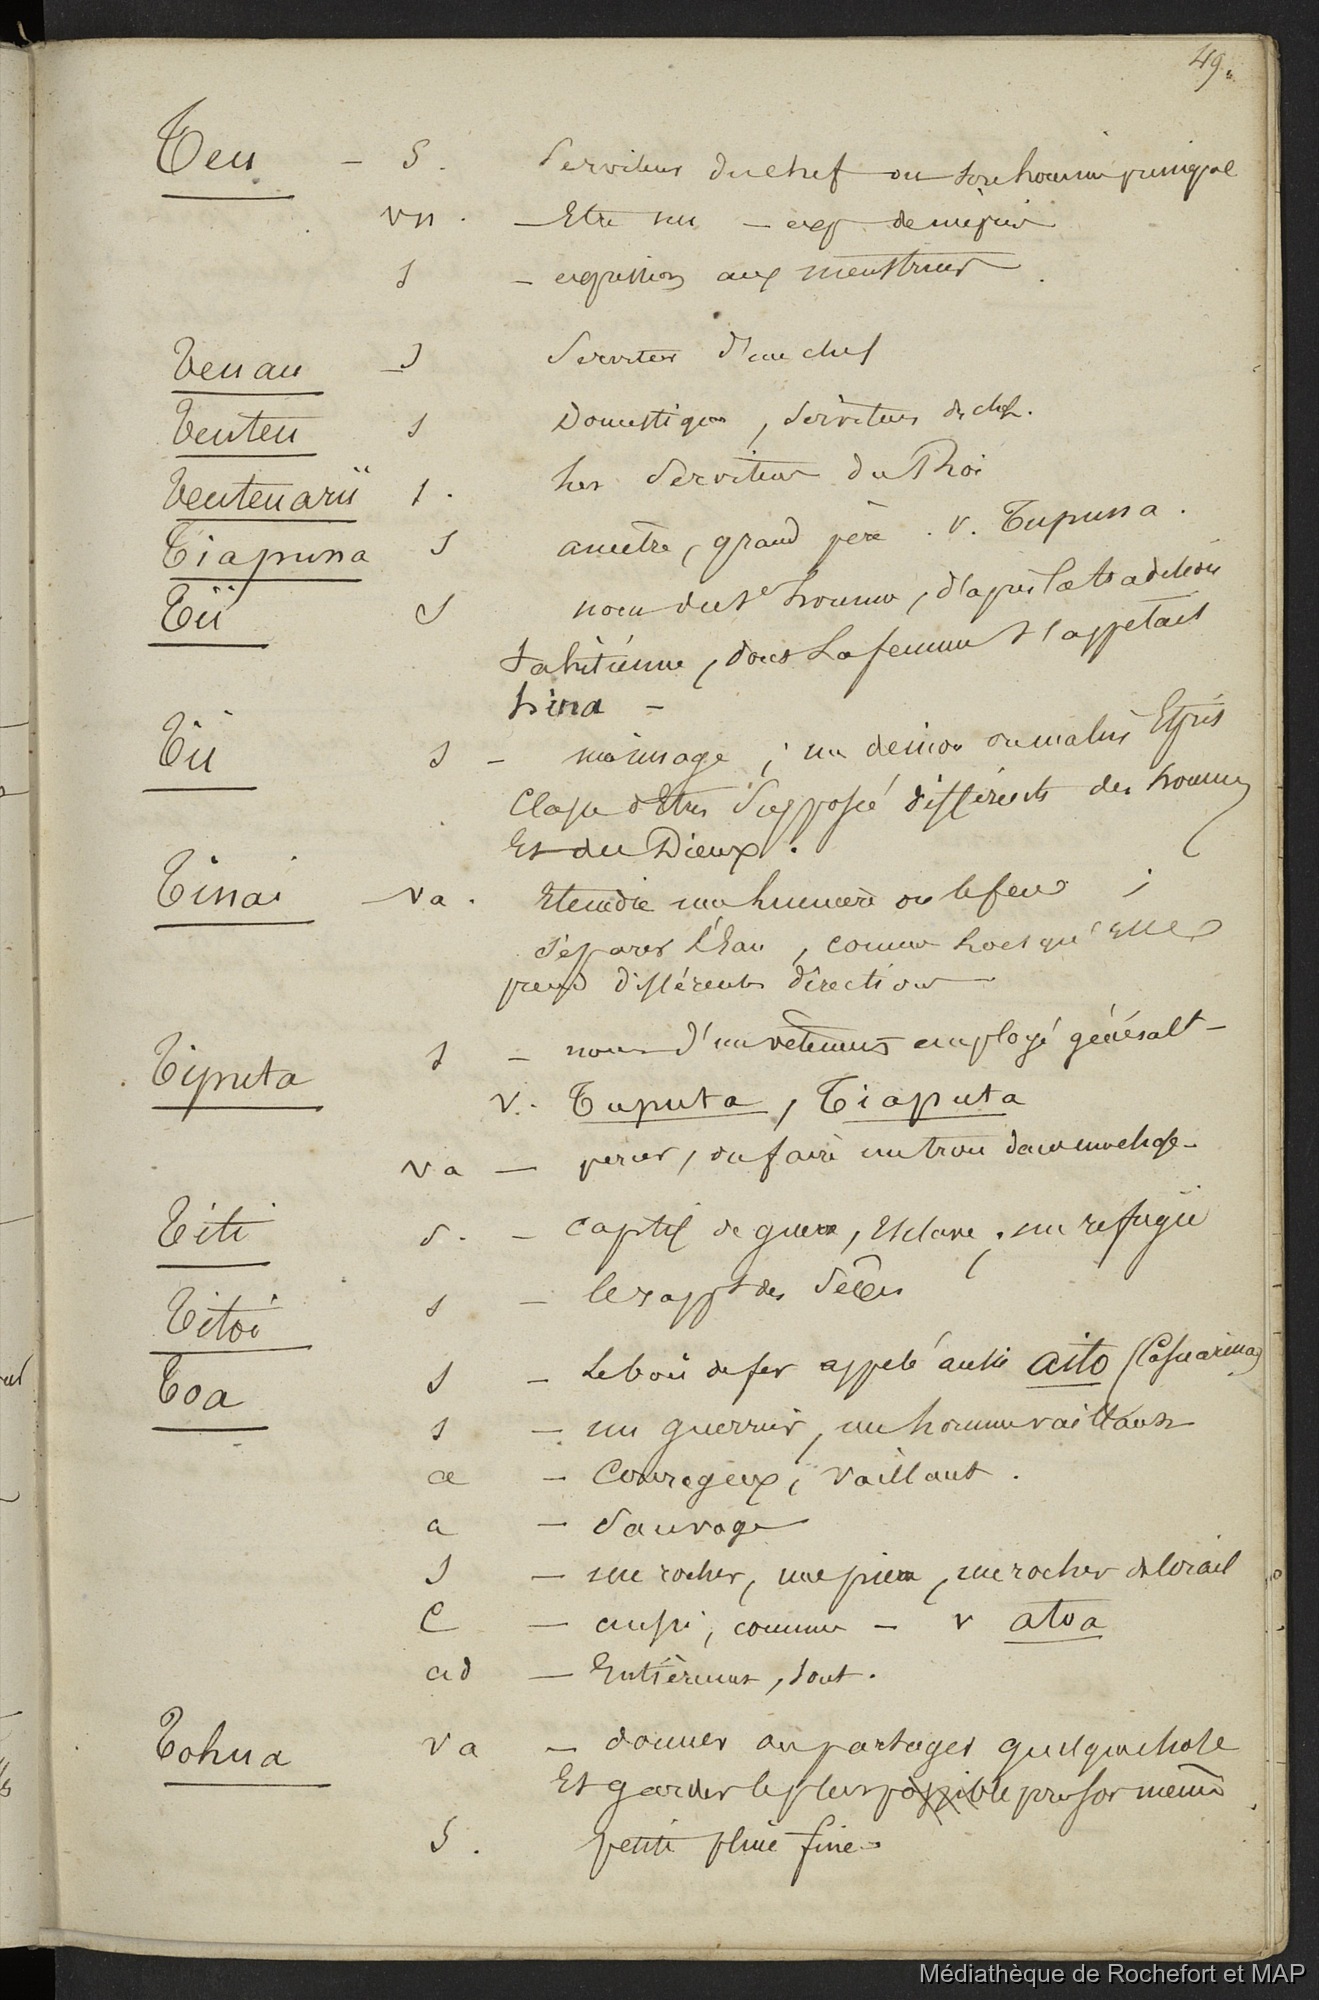 49.
Teu - S. Serviteur du chef ou son homme principal
vn. - Etre nu - exp de mépris
s - expression aux menstrues
Teuau - s Serviteur d'un chef
Teuteu s Domestique, Serviteur de chef.
Teuteuarii s. les Serviteurs du Roi
Tiapuna s ancêtre, grand père. v. Tupuna.
Tii s nom du 1er homme, d'après la tradition
tahitienne, dont la femme s'appelait
hina -
Tii s - une image ; un démon ou malin Esprit
Classe d'Etres Supposés différents des hommes
Et des Dieux.
Tinai - va. Eteindre une lumière ou le feu ;
Séparer l'Eau, comme lorsqu'elle
prend différentes directions
Tiputa s - nom d'un vêtement employé généralt -
v. Taputa, Tiaputa
va - percer, ou faire un trou dans une chose -
Titi s. - Captif de guerre, Esclave ; un refugié
Titoi s - le rappt des Sexes
Toa s - le bois de fer appelé aussi aito (Casuarina)
s - un guerrier, un homme vaillant
a - Courageux, vaillant.
a - Sauvage
s - un rocher, une pierre, un rocher de Corail
C - aussi, comme - v atoa
ad - Entièrement, tout.
Tohua va - donner ou partager quelque chose
Et garder le plus possible pour soi même
S. petite pluie fine -
Médiathèque de Rochefort et MAP